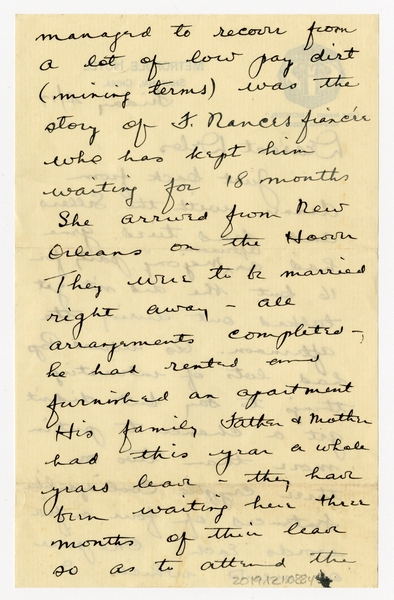 managed to recover from
a lot of low pay dirt
(mining terms) was the
story of F. Nances fiancée
who has kept him
waiting for 18 months
She arrived from New
Orleans on the Hoover
They were to be married
right away – all
arrangements completed –
he had rented and
furnished an apartment
His family Father & Mother
had this year a whole
years leave – they have
been waiting here three
months of their leave
so as to attend the
2019.12.1.088